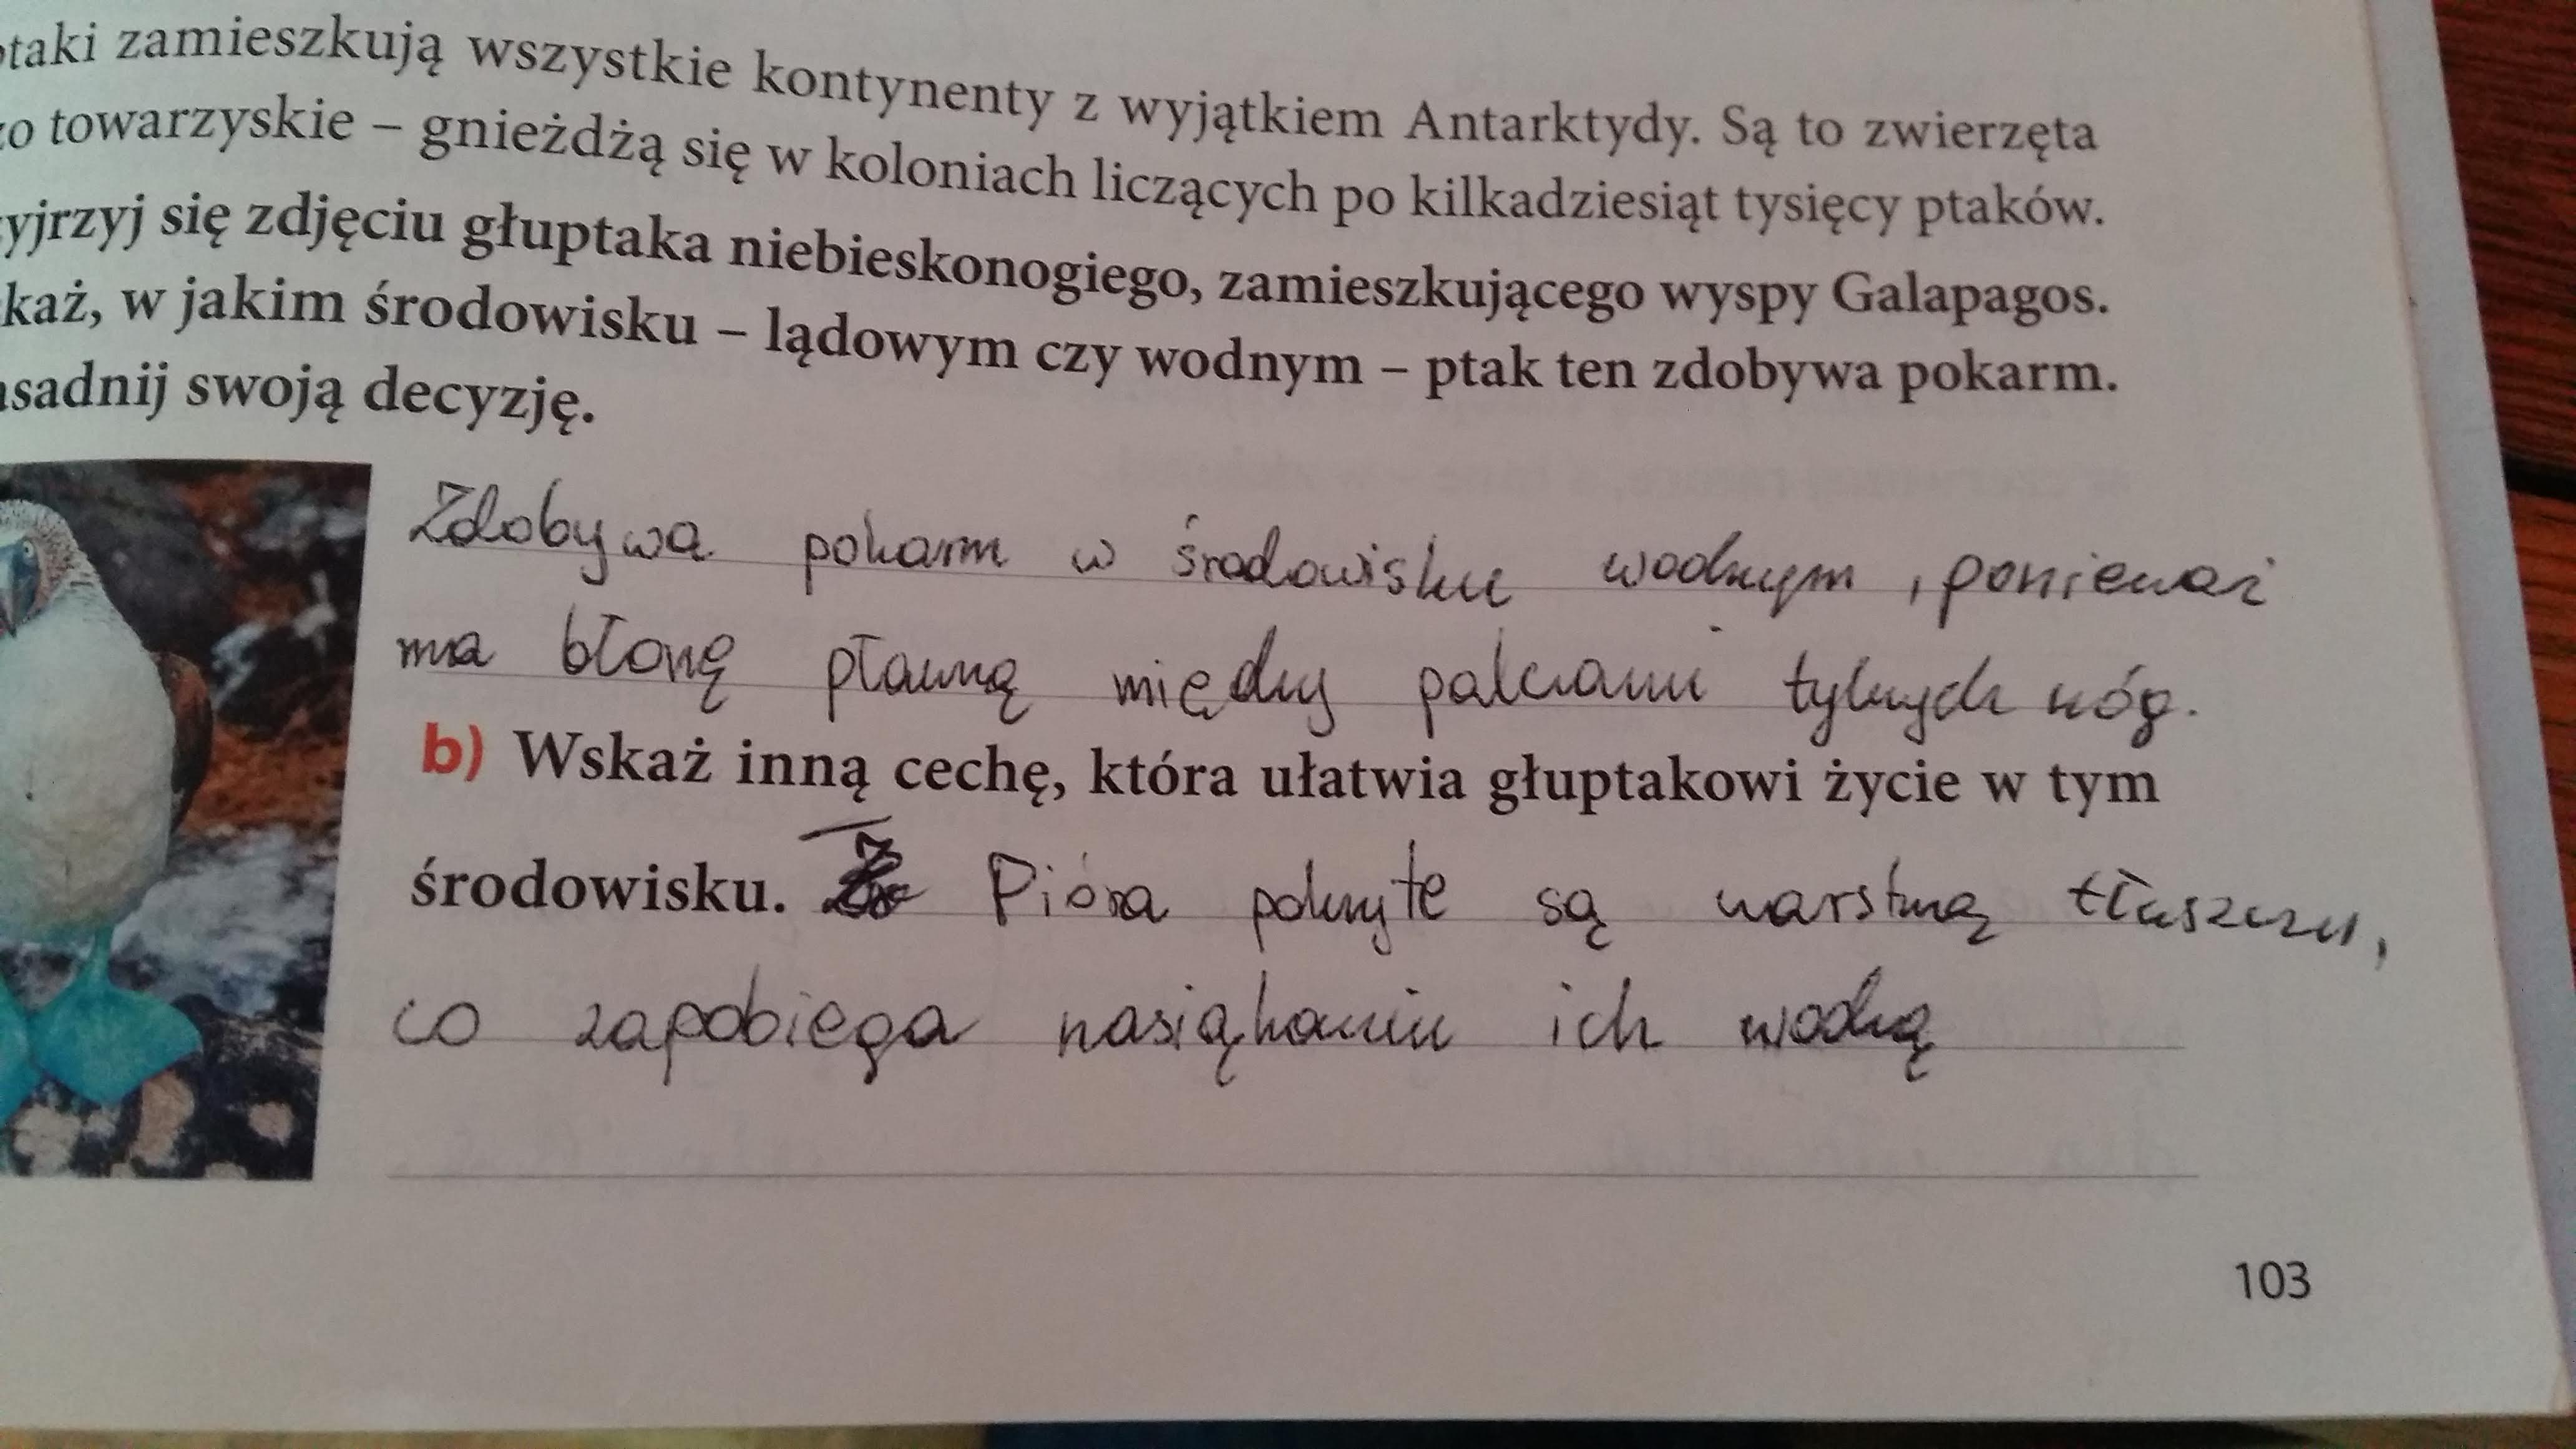 ptaki zamieszkują wszystkie kontynenty z wyjątkiem Antarktydy. Są to zwierzęta
zo towarzyskie – gnieżdżą się w koloniach liczących po kilkadziesiąt tysięcy ptaków.
yjrzyj się zdjęciu głuptaka niebieskonogiego, zamieszkującego wyspy Galapagos.
każ, w jakim środowisku – lądowym czy wodnym – ptak ten zdobywa pokarm.
asadnij swoją decyzję.
Zdobywa pokarm w środowisku wodnym, ponieważ
ma błonę pławną między palcami tylnych nóg.
b) Wskaż inną cechę, która ułatwia głuptakowi życie w tym
środowisku. Pióra pokryte są warstwą tłuszczu,
co zapobiega nasiąkaniu ich wodą
103